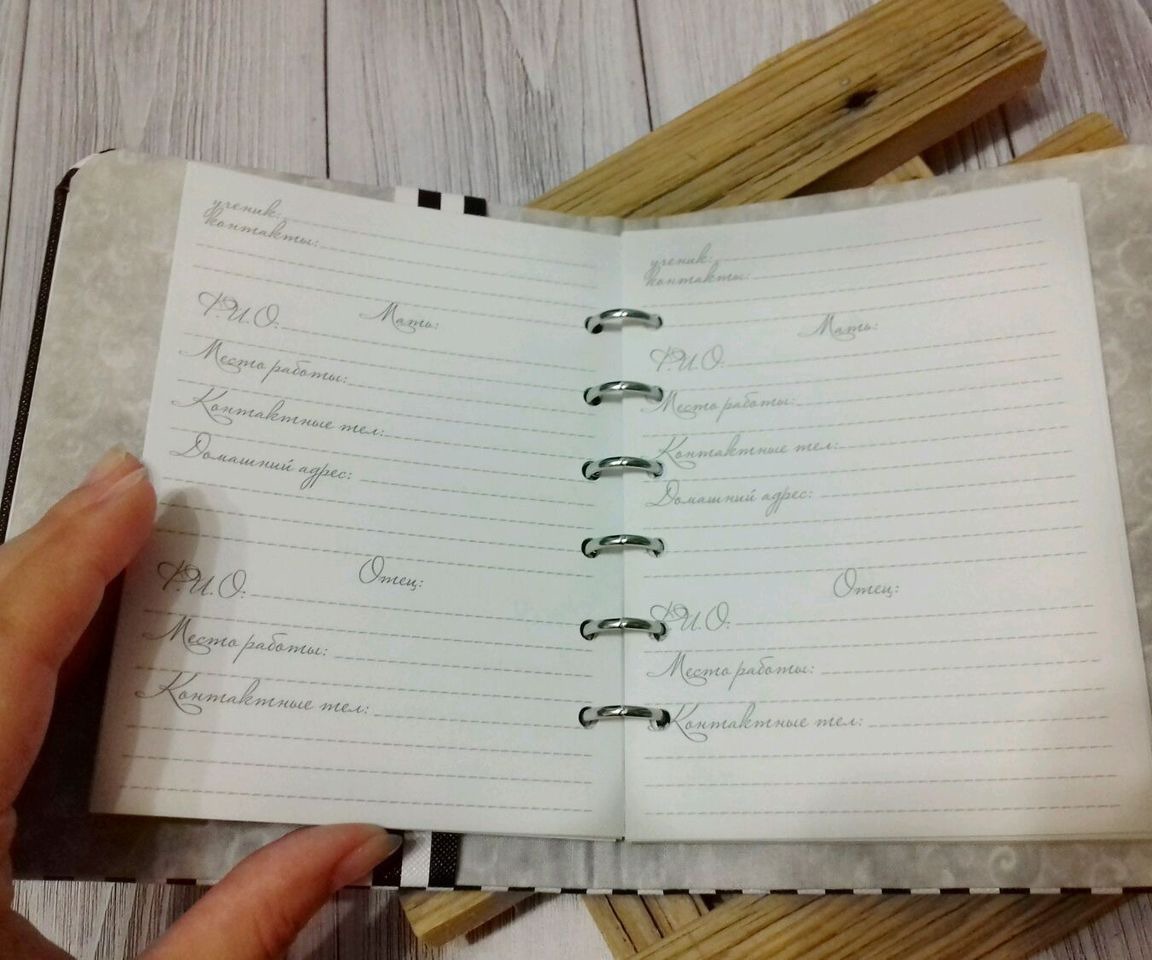 ученик:
контакты:
Мать:
Ф.И.О.
Место работы:
Контактные тел:
Домашний адрес:
Отец:
Ф.И.О:
Место работы:
Контактные тел:
ученик:
контакты:
Мать:
Ф.И.О.
Место работы:
Контактные тел:
Домашний адрес:
Отец:
Ф.И.О.
Место работы:
Контактные тел: